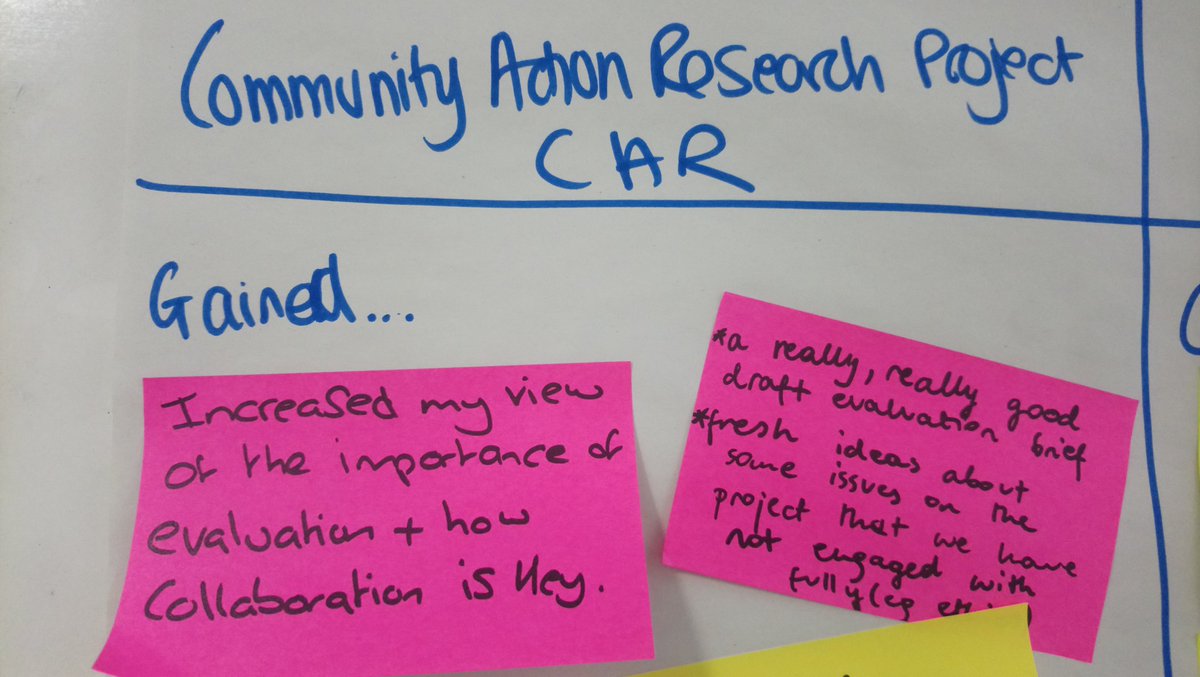 Community Action Research Project
CAR
Gained....
Increased my view
of the importance of
evaluation + how
Collaboration is key.
*a really, really good
draft evaluation brief
*fresh ideas about
some issues on the
project that we have
not engaged with
fully (eg